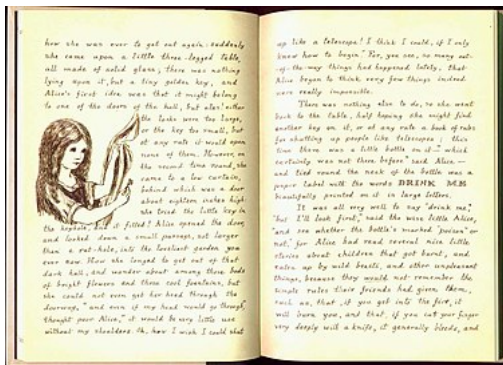 how she was ever to get out again: suddenly
she came upon a little three-legged table,
all made of solid glass; there was nothing
lying upon it, but a tiny golden key, and
Alice's first idea was that it might belong
to one of the doors of the hall, but alas! either
the locks were too large,
or the key too small, but
at any rate it would open
none of them. However, on
the second time round, she
came to a low curtain,
behind which was a door
about eighteen inches high:
she tried the little key in
the keyhole, and it fitted! Alice opened the door,
and looked down a small passage, not larger
than a rat-hole, into the loveliest garden you
ever saw. How she longed to get out of that
dark hall, and wander about among those beds
of bright flowers and those cool fountains, but
she could not even get her head through the
doorway, "and even if my head would go through,"
thought poor Alice, "it would be very little use
without my shoulders. Oh, how I wish I could shut
up like a telescope! I think I could, if I only
know how to begin." For, you see, so many out-
of-the-way things had happened lately, that
Alice began to think very few things indeed
were really impossible.
There was nothing else to do, so she went
back to the table, half hoping she might find
another key on it, or at any rate a book of rules
for shutting up people like telescopes: this
time there was a little bottle on it—"which
certainly was not there before" said Alice—
and tied round the neck of the bottle was a
paper label with the words DRINK ME
beautifully printed on it in large letters.
It was all very well to say "drink me,"
"but I'll look first," said the wise little Alice,
"and see whether the bottle's marked "poison" or
not," for Alice had read several nice little
stories about children that got burnt, and
eaten up by wild beasts, and other unpleasant
things, because they would not remember the
simple rules their friends had given them,
such as, that, if you get into the fire, it
will burn you, and that, if you cut your finger
very deeply with a knife, it generally bleeds, and